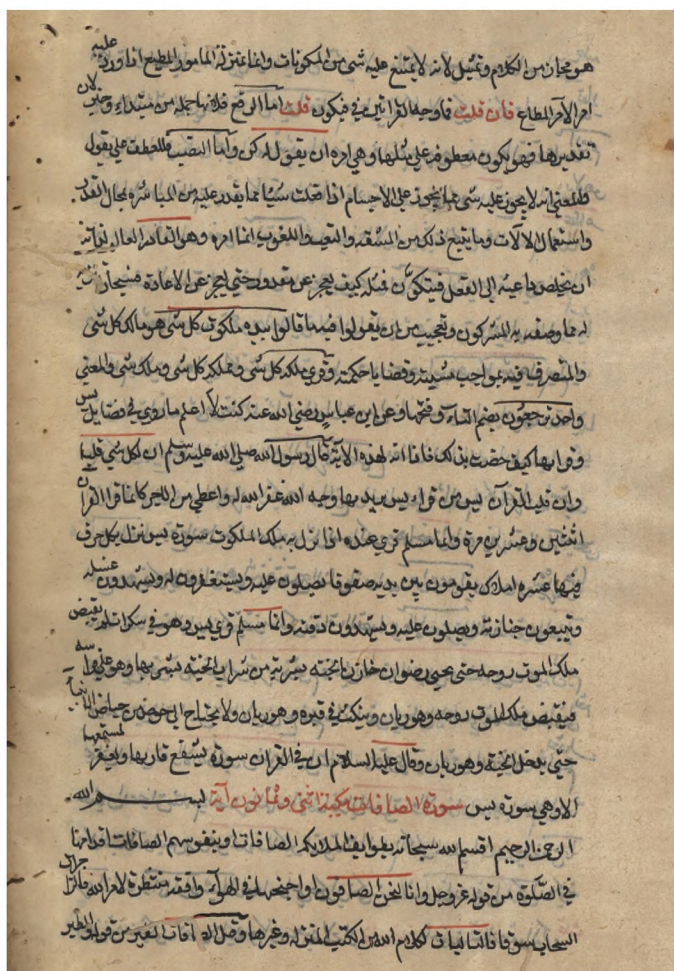 هو مجاز من الكلام وتمثيل لانه لا يمتنع عليه شى من المكونات وانها بمنزلة المامور المطيع اذا ورد عليه
امر الآمر المطاع فان قلت فما وجه القراتين في فيكون قلت اما الرفع فلانها جملة من مبتداء وخبر لان
تقديرها فهو يكون معطوفة على مثلها وهي امره ان يقول له كن واما النصب فللعطف على يقول
والمعنى انه لا يجوز عليه شى مما يجوز على الاجسام اذا فعلت شيا مما يقدر عليه من المباشرة بمحال القدر
واستعمال الآلات وما يتبع ذلك من المشقة والتعب واللغوب انما امره وهو القادر العالم لذاته
ان يخلص داعيه الى الفعل فيتكون فمثله كيف يعجز عن مقدور حتى يعجز عن الاعادة فسبحان تنزيه
له مما وصفه به المشركون وتعجيب من ان يقولوا فيه ما قالوا بيده ملكوت كل شى هو مالك كل شى
والمتصرف فيه بمواجب مشيته وقضايا حكمته وقرى ملكة كل شى ومملكة كل شى وملك كل شى والمعنى
واحد ترجعون بضم التاء وفتحها وعن ابن عباس رضي الله عنه كنت لا اعلم ما روي في فضايل يس
وقراتها كيف خصت بذلك فاذا انه لهذه الاية قال رسول الله صلى الله عليه وسلم ان لكل شى قلبا
وان قلب القرآن يس من قراء يس يريد بها وجه الله غفر الله له واعطي من الاجر كانما قرا القرآن
اثنتين وعشرين مرة وايما مسلم قري عنده اذا نزل به ملك الموت سورة يس نزل بكل حرف
فيها عشرة املاك يقومون بين يديه صفوفا يصلون عليه ويستغفرون له ويشهدون غسله
ويتبعون جنازته ويصلون عليه ويشهدون دفنه وايما مسلم قرى يس وهو في سكرات لم يقبض
ملك الموت روحه حتى يحيى رضوان خازن الجنة بشربة من شراب الجنة يشربها وهو على فراشه
فيقبض ملك الموت روحه وهو ريان ويمكث في قبره وهو ريان ولا يحتاج الى حوض من حياض الانبياء
حتى يدخل الجنة وهو ريان وقال عليه السلام ان في القران سورة يشفع قاريها ويغفر لمستمعها
الا وهي سورة يس سورة الصافات مكية اثنى وثمانون آية بسم الله
الرحمن الرحيم اقسم الله سبحانه بطوايف الملايكة الصافات او بنفوسهم الصافات اقدامها
في الصلوة من قوله عز وجل وانا لنحن الصافون او اجنحتها في الهواء واقفة منتظرة لامر الله فالزاجرات
السحاب سوقا فالتاليات لكلام الله من الكتب المنزلة وغيرها وقيل الصافات الطير من قوله والطير